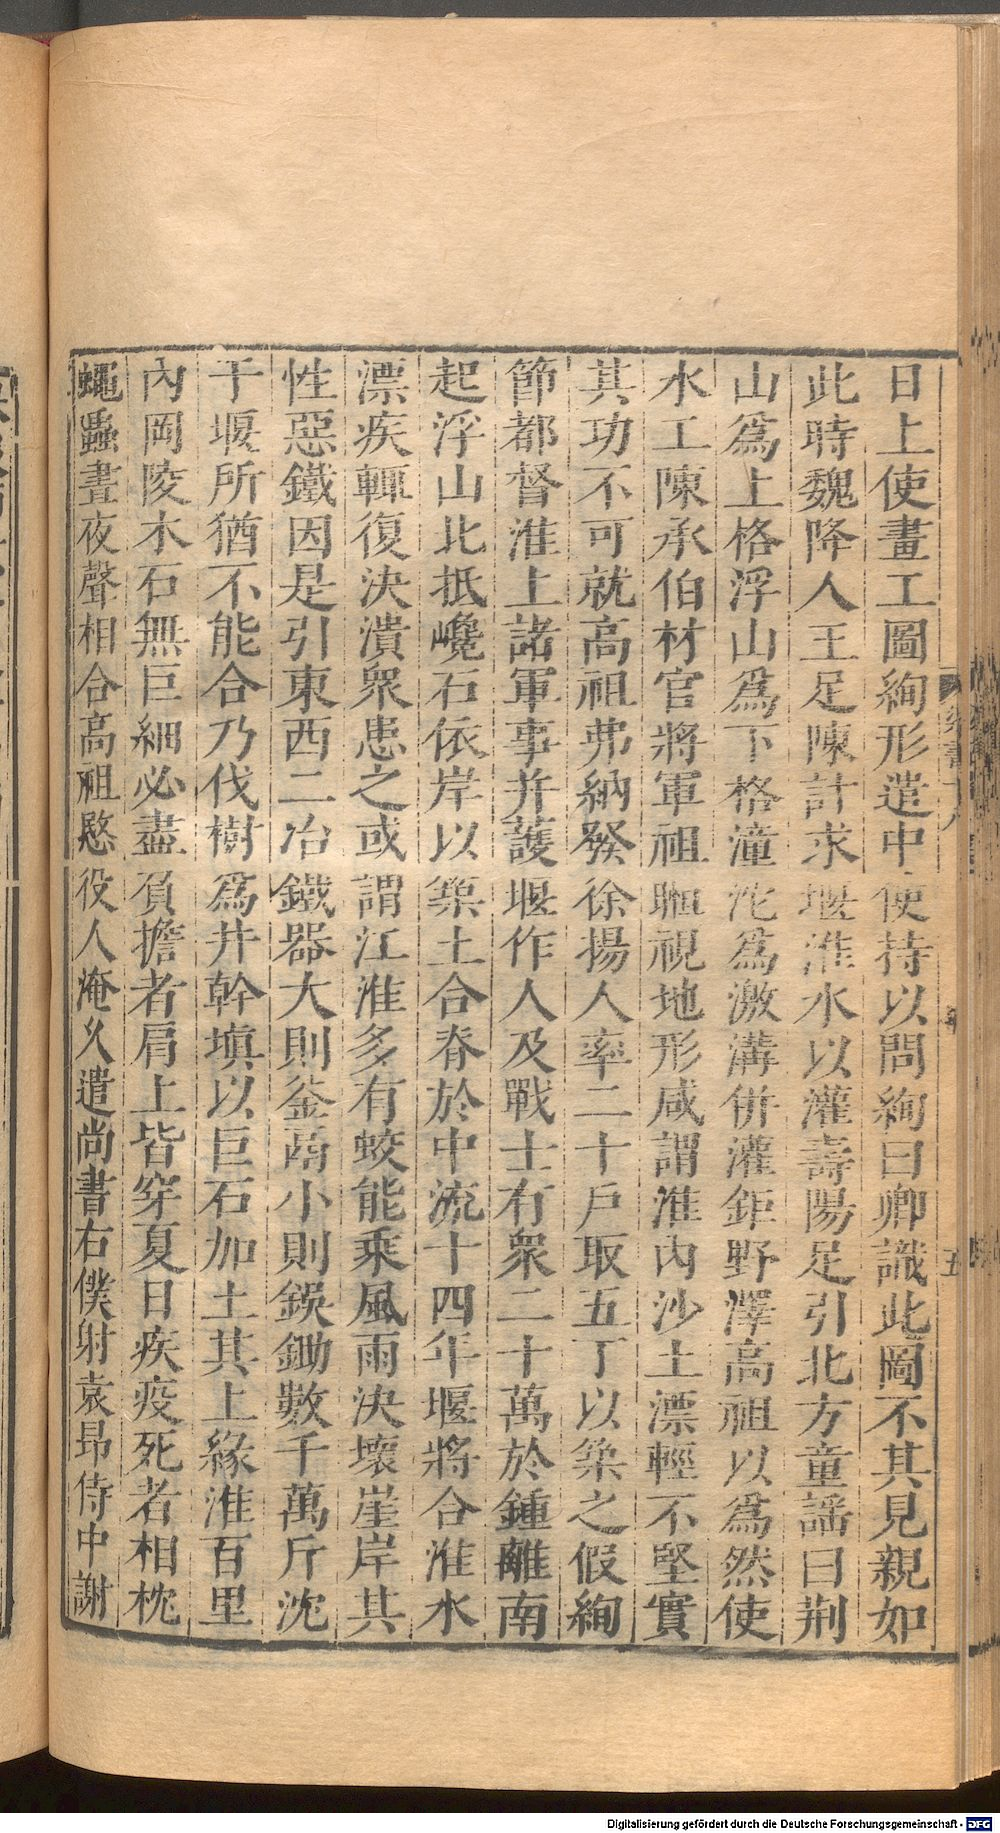 日上使畫工圖絢形遣中使持以問絢曰卿識此圖不其見親如
此時魏降人王足陳計求堰淮水以灌壽陽足引北方童謡曰荆
山爲上格浮山爲下格潼沱爲激溝併灌鉅野澤高祖以爲然使
水工陳承伯材官將軍祖䁐視地形咸謂淮內沙土漂輕不堅實
其功不可就高祖弗納發徐揚人率二十戶取五丁以築之假絢
節都督淮上諸軍事并護堰作人及戰士有衆二十萬於鍾離南
起浮山北抵巉石依岸以築土合脊於中流十四年堰將合淮水
漂疾輒復決潰衆患之或謂江淮多有蛟能乘風雨決壞崖岸其
性惡鐵因是引東西二冶鐵器大則釜鬲小則鋘鋤數千萬斤沈
于堰所猶不能合乃伐樹爲井幹填以巨石加土其上緣淮百里
內岡陵木石無巨細必盡負擔者肩上皆穿夏日疾疫死者相枕
蠅蟲晝夜聲相合高祖愍役人淹久遣尚書右僕射袁昂侍中謝
梁書十八
五
Digitalisierung gefördert durch die Deutsche Forschungsgemeinschaft - DFG